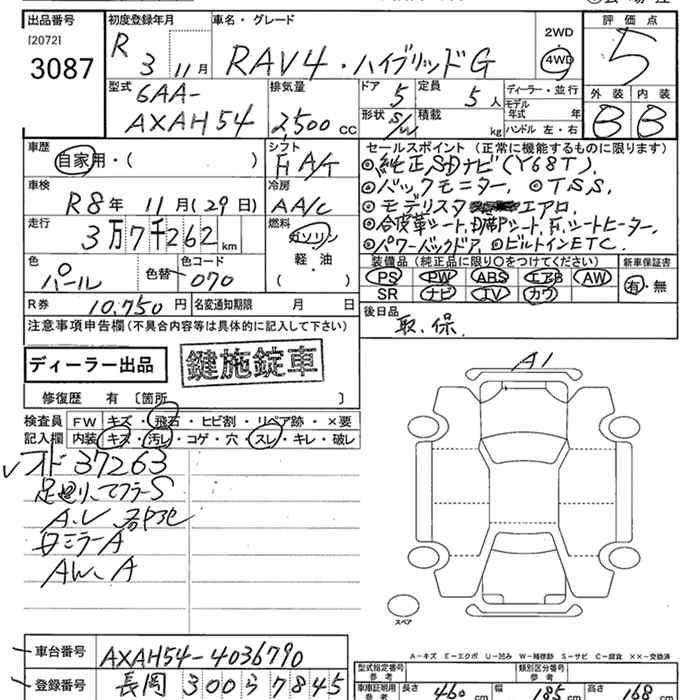 出品番号 初度登録年月 車名・グレード 評価点
[2072]
3087
R 3 11月 RAV4・ハイブリッドG 2WD 4WD 5
型式 排気量 ドア 定員 ディーラー・並行 外装 内装
6AA- 5 5人 モデル年式 年
AXAH54 2,500 CC 形状 S/W 積載 kg ハンドル 左・右 B B
車歴 シフト セールスポイント(正常に機能するものに限ります)
自家用・( ) F A/T ◎純正SDナビ(Y68T).
車検 冷房 ◎バックモニター. ◎T.S.S.
R8年 11月(29日) AA/C ◎モデリスタ エアロ.
走行 燃料 ◎合皮革シート,
3万7千262km ガソリン ◎パワーバックドア. ◎ビルトインETC.
色 色替 色コード 軽・油
パール 070 ( )
装備品(純正品に限り○をつけてください) 新車保証書
PS PW ABS エアB AW 有・無
SR ナビ TV カワ
R券 10,750円 名変通知期限 月 日 後日品
取.保.
注意事項申告欄(不具合内容等は具体的に記入して下さい)
ディーラー出品 鍵施錠車
修復歴 有 〔箇所 〕
A1
検査員 FW キズ・飛石・ヒビ割・リペア跡・×要
記入欄 内装 キズ・汚レ・コゲ・穴・スレ・キレ・破レ
37263
A.V
ミラーA
AW、A
スペア
A-キズ E-エクボ U-凹み W-補修跡 S-サビ C-腐食 ××-交換済
車台番号 AXAH54-4036790
型式指定番号 参考 類別区分番号 参考
登録番号 長岡 300 7845
車庫証明用 参考 長さ 460cm 幅 185cm 高さ 168cm